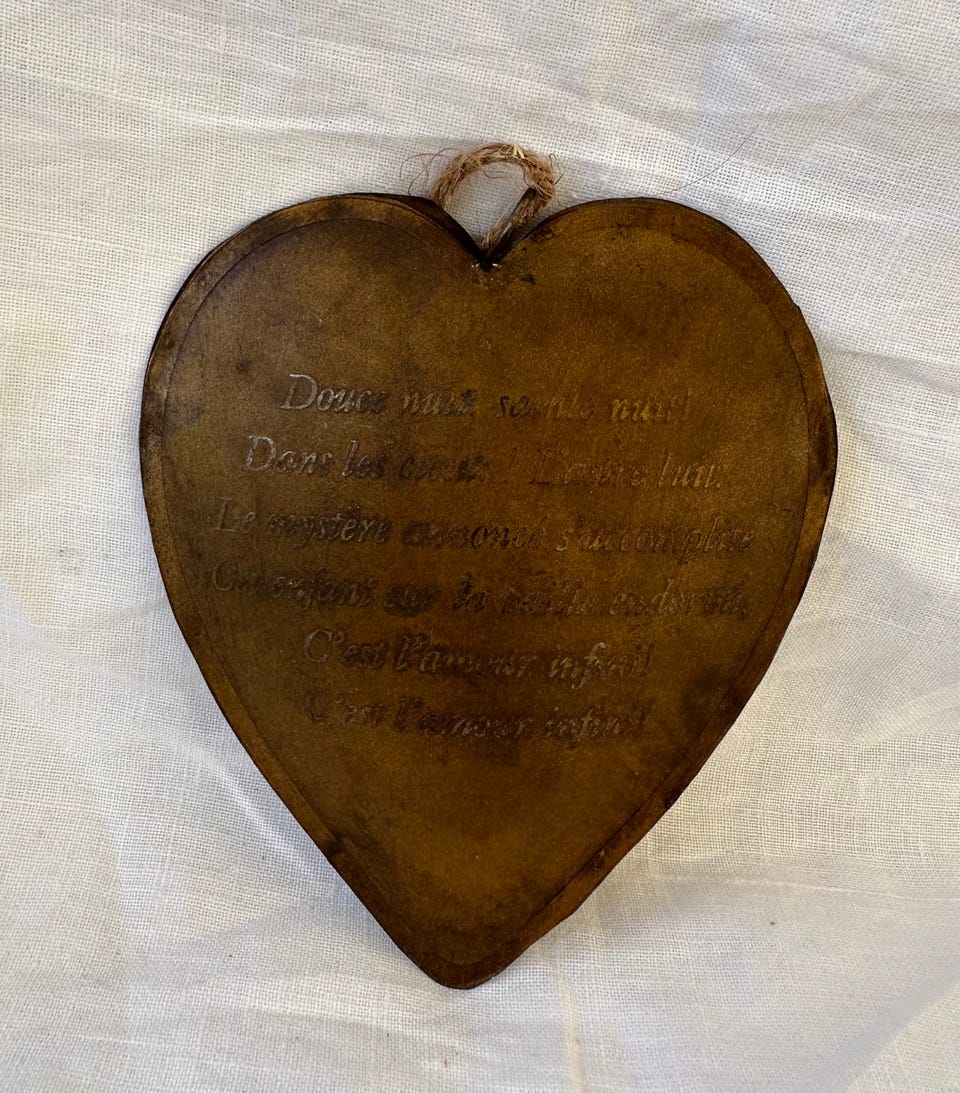 Douce nuit, sainte nuit!
Dans les cieux! L'astre luit.
Le mystère annoncé s'accomplit
Cet enfant sur la paille endormi,
C'est l'amour infini!
C'est l'amour infini!